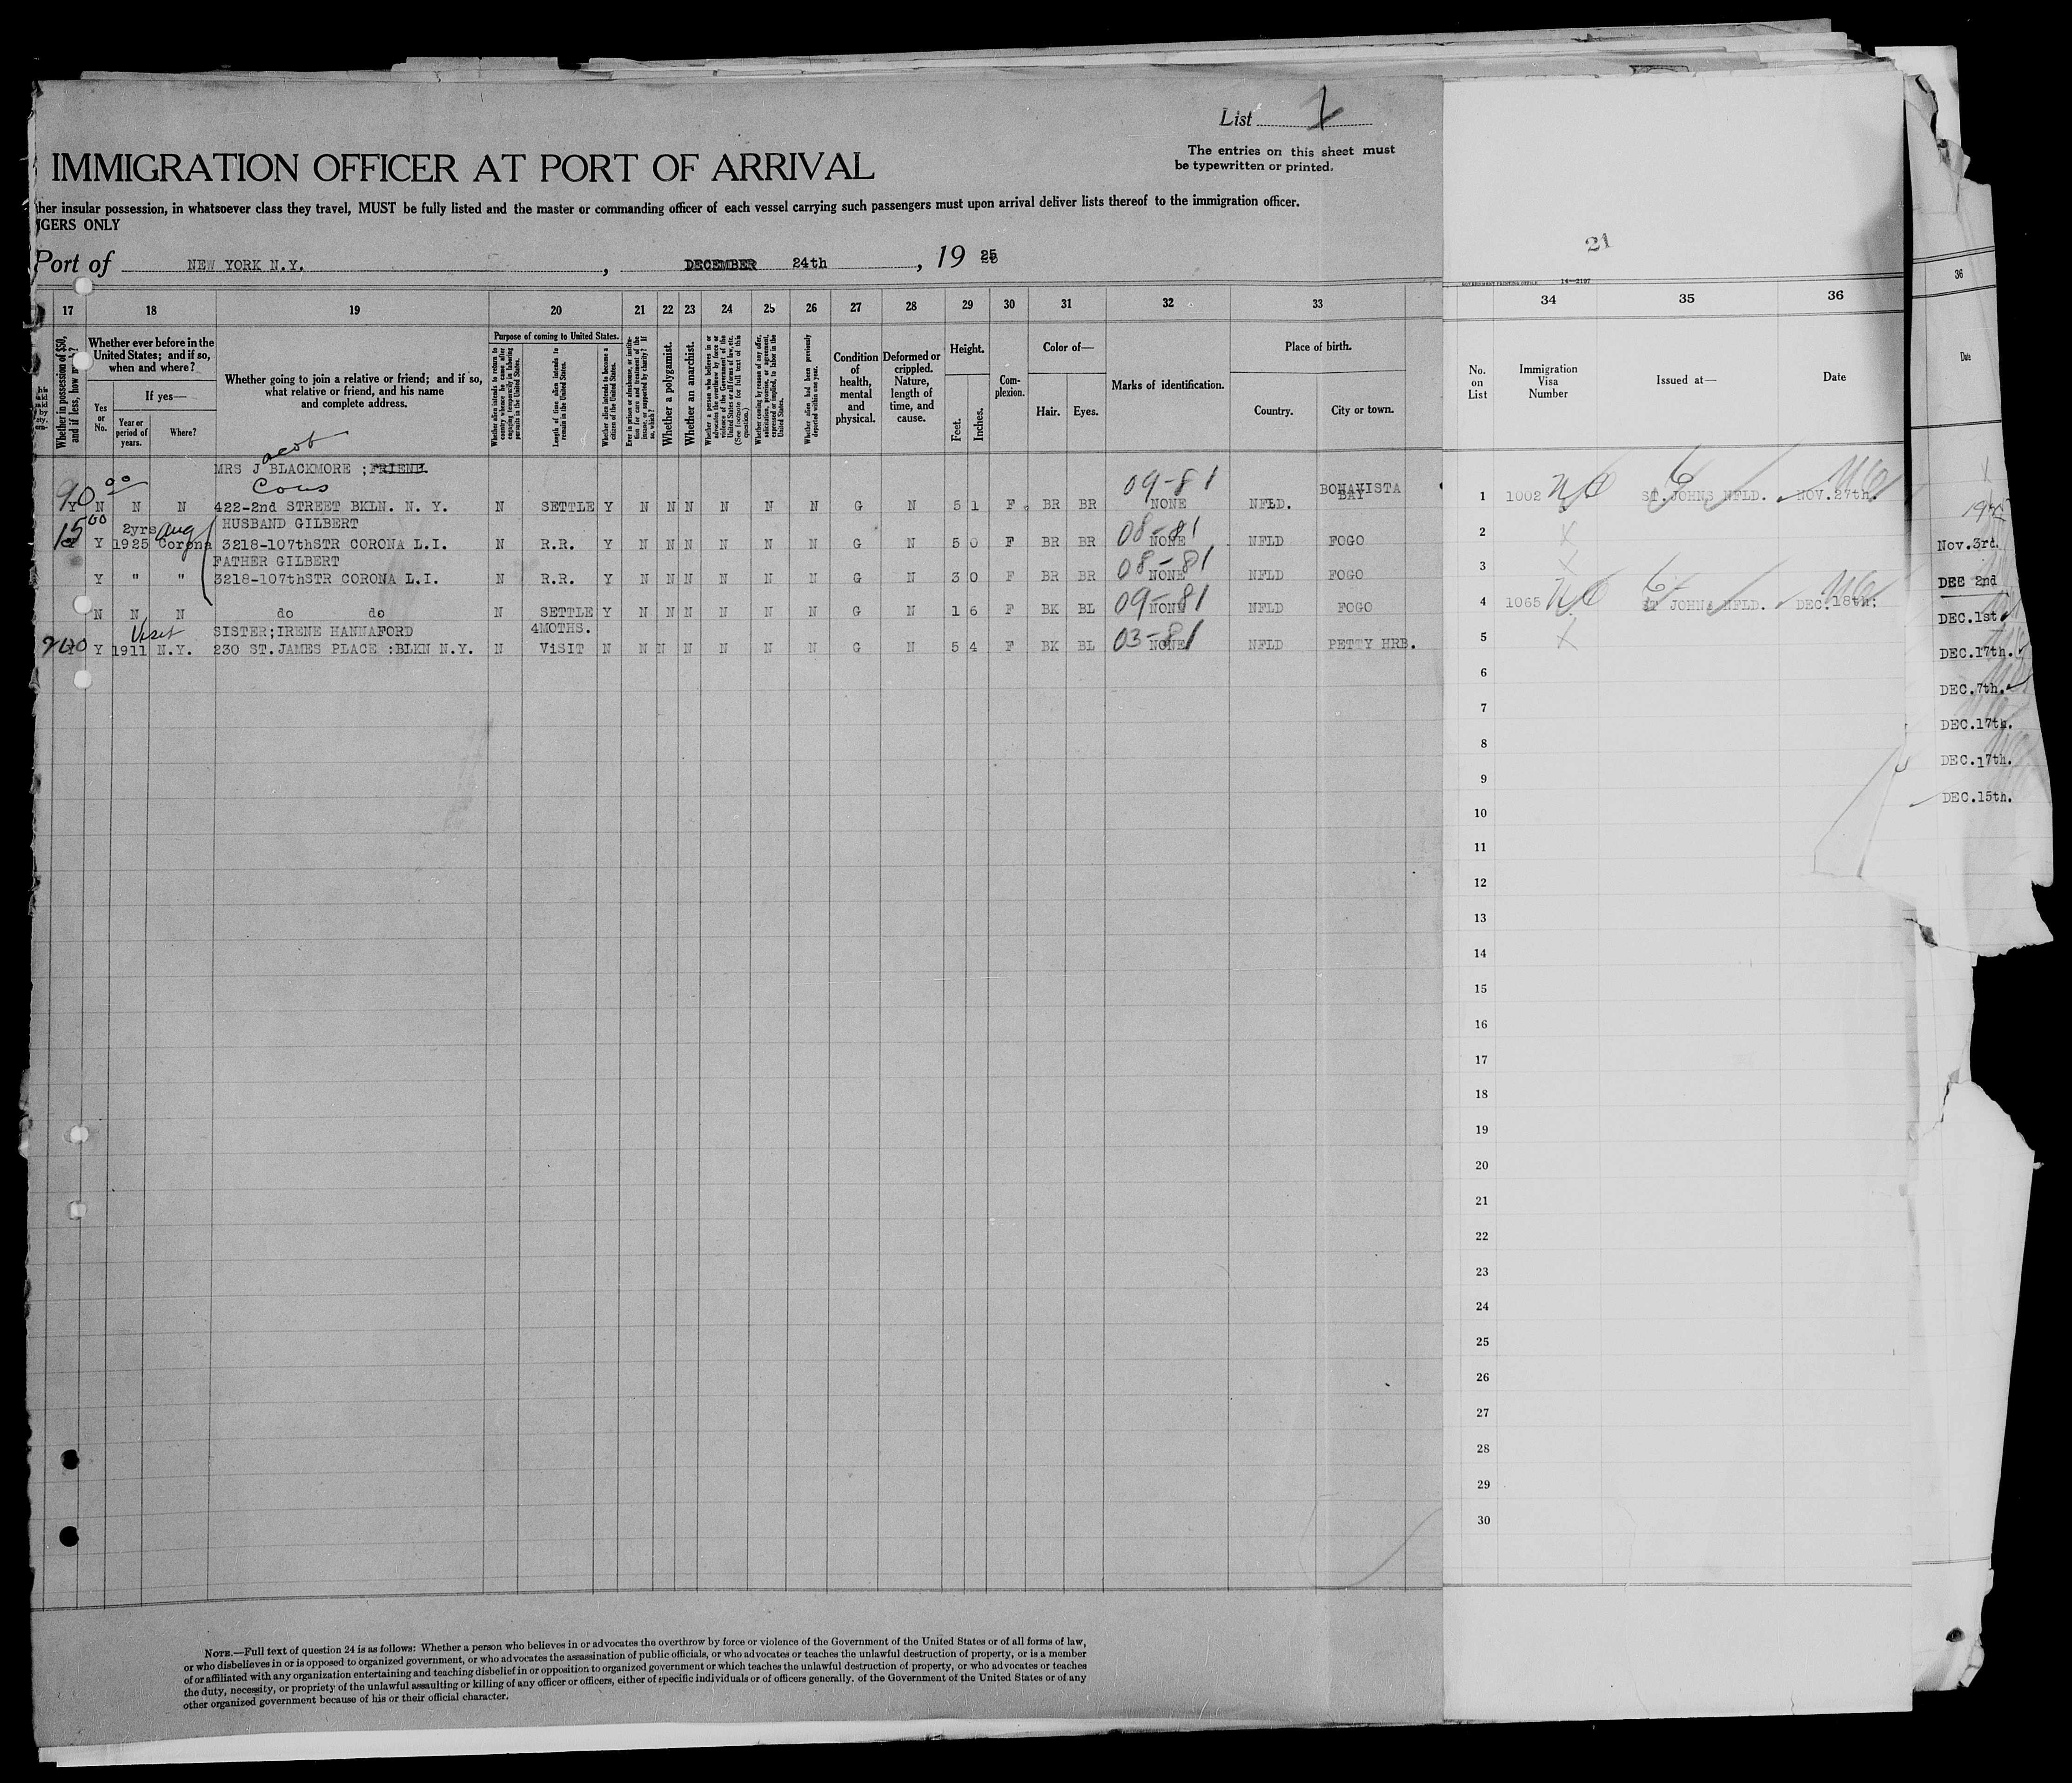 List 1
The entries on this sheet must
be typewritten or printed.
IMMIGRATION OFFICER AT PORT OF ARRIVAL
her insular possession, in whatsoever class they travel, MUST be fully listed and the master or commanding officer of each vessel carrying such passengers must upon arrival deliver lists thereof to the immigration officer.
GERS ONLY
21
Port of NEW YORK N.Y. , DECEMBER 24th , 19 25
14—2197
17 18 19 20 21 22 23 24 25 26 27 28 29 30 31 32 33 34 35 36
Whether in possession of $50, and if less, how
Whether ever before in the United States; and if so, when and where?
Yes or No.
If yes—
Year or period of years.
Where?
Whether going to join a relative or friend; and if so, what relative or friend, and his name and complete address.
Purpose of coming to United States.
Whether alien intends to return to country whence he came after engaging temporarily in laboring pursuits in the United States.
Length of time alien intends to remain in the United States.
Whether alien intends to become a citizen of the United States.
Ever in prison or almshouse, or institution for care and treatment of the insane, or supported by charity? If so, which?
Whether a polygamist.
Whether an anarchist.
Whether a person who believes in or advocates the overthrow by force or violence of the Government of the United States or all forms of law, etc. (See footnote for full text of this question.)
Whether coming by reason of any offer, solicitation, promise, or agreement, expressed or implied, to labor in the United States.
Whether alien had been previously deported within one year.
Condition of health, mental and physical.
Deformed or crippled. Nature, length of time, and cause.
Height.
Feet. Inches.
Complexion.
Color of—
Hair. Eyes.
Marks of identification.
Place of birth.
Country. City or town.
No. on List
Immigration Visa Number
Issued at—
Date
acob
MRS J BLACKMORE ;FRIEND.
Cous
90 00 Y N N N 422-2nd STREET BKLN. N. Y. N SETTLE Y N N N N N N G N 5 1 F BR BR 09-81 NONE NFLD. BONAVISTA BAY 1 1002 ST.JOHNS NFLD. NOV.27th
HUSBAND GILBERT
15 00 Y 2yrs 1925 Aug Corona 3218-107thSTR CORONA L.I. N R.R. Y N N N N N N G N 5 0 F BR BR 08-81 NONE NFLD FOGO 2
FATHER GILBERT
Y " " 3218-107thSTR CORONA L.I. N R.R. Y N N N N N N G N 3 0 F BR BR 08-81 NONE NFLD FOGO 3
N N N do do N SETTLE Y N N N N N N G N 1 6 F BK BL 09-81 NONE NFLD FOGO 4 1065 ST JOHNS NFLD. DEC.18th:
Visit SISTER;IRENE HANNAFORD 4MOTHS.
200 Y 1911 N.Y. 230 ST.JAMES PLACE :BLKN N.Y. N ViSIT N N N N N N N G N 5 4 F BK BL 03-81 NONE NFLD PETTY HRB. 5
6
7
8
9
10
11
12
13
14
15
16
17
18
19
20
21
22
23
24
25
26
27
28
29
30
36
Date
Nov.3rd.
DEC 2nd
DEC.1st
DEC.17th.
DEC.7th.
DEC.17th.
DEC.17th.
DEC.15th.
NOTE.—Full text of question 24 is as follows: Whether a person who believes in or advocates the overthrow by force or violence of the Government of the United States or of all forms of law,
or who disbelieves in or is opposed to organized government, or who advocates the assassination of public officials, or who advocates or teaches the unlawful destruction of property, or is a member
of or affiliated with any organization entertaining and teaching disbelief in or opposition to organized government or which teaches the unlawful destruction of property, or who advocates or teaches
the duty, necessity, or propriety of the unlawful assaulting or killing of any officer or officers, either of specific individuals or of officers generally. of the Government of the United States or of any
other organized government because of his or their official character.